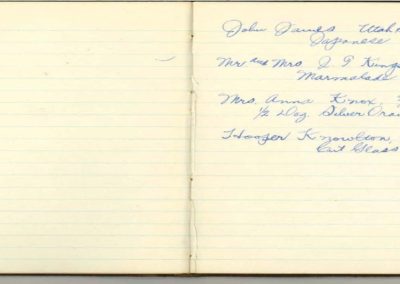 John James Utah
Japanese
Mr and Mrs J. P. King
Marmalade
Mrs. Anna Knox,
1/2 Doz Silver
Knowlton,
Cut Glass